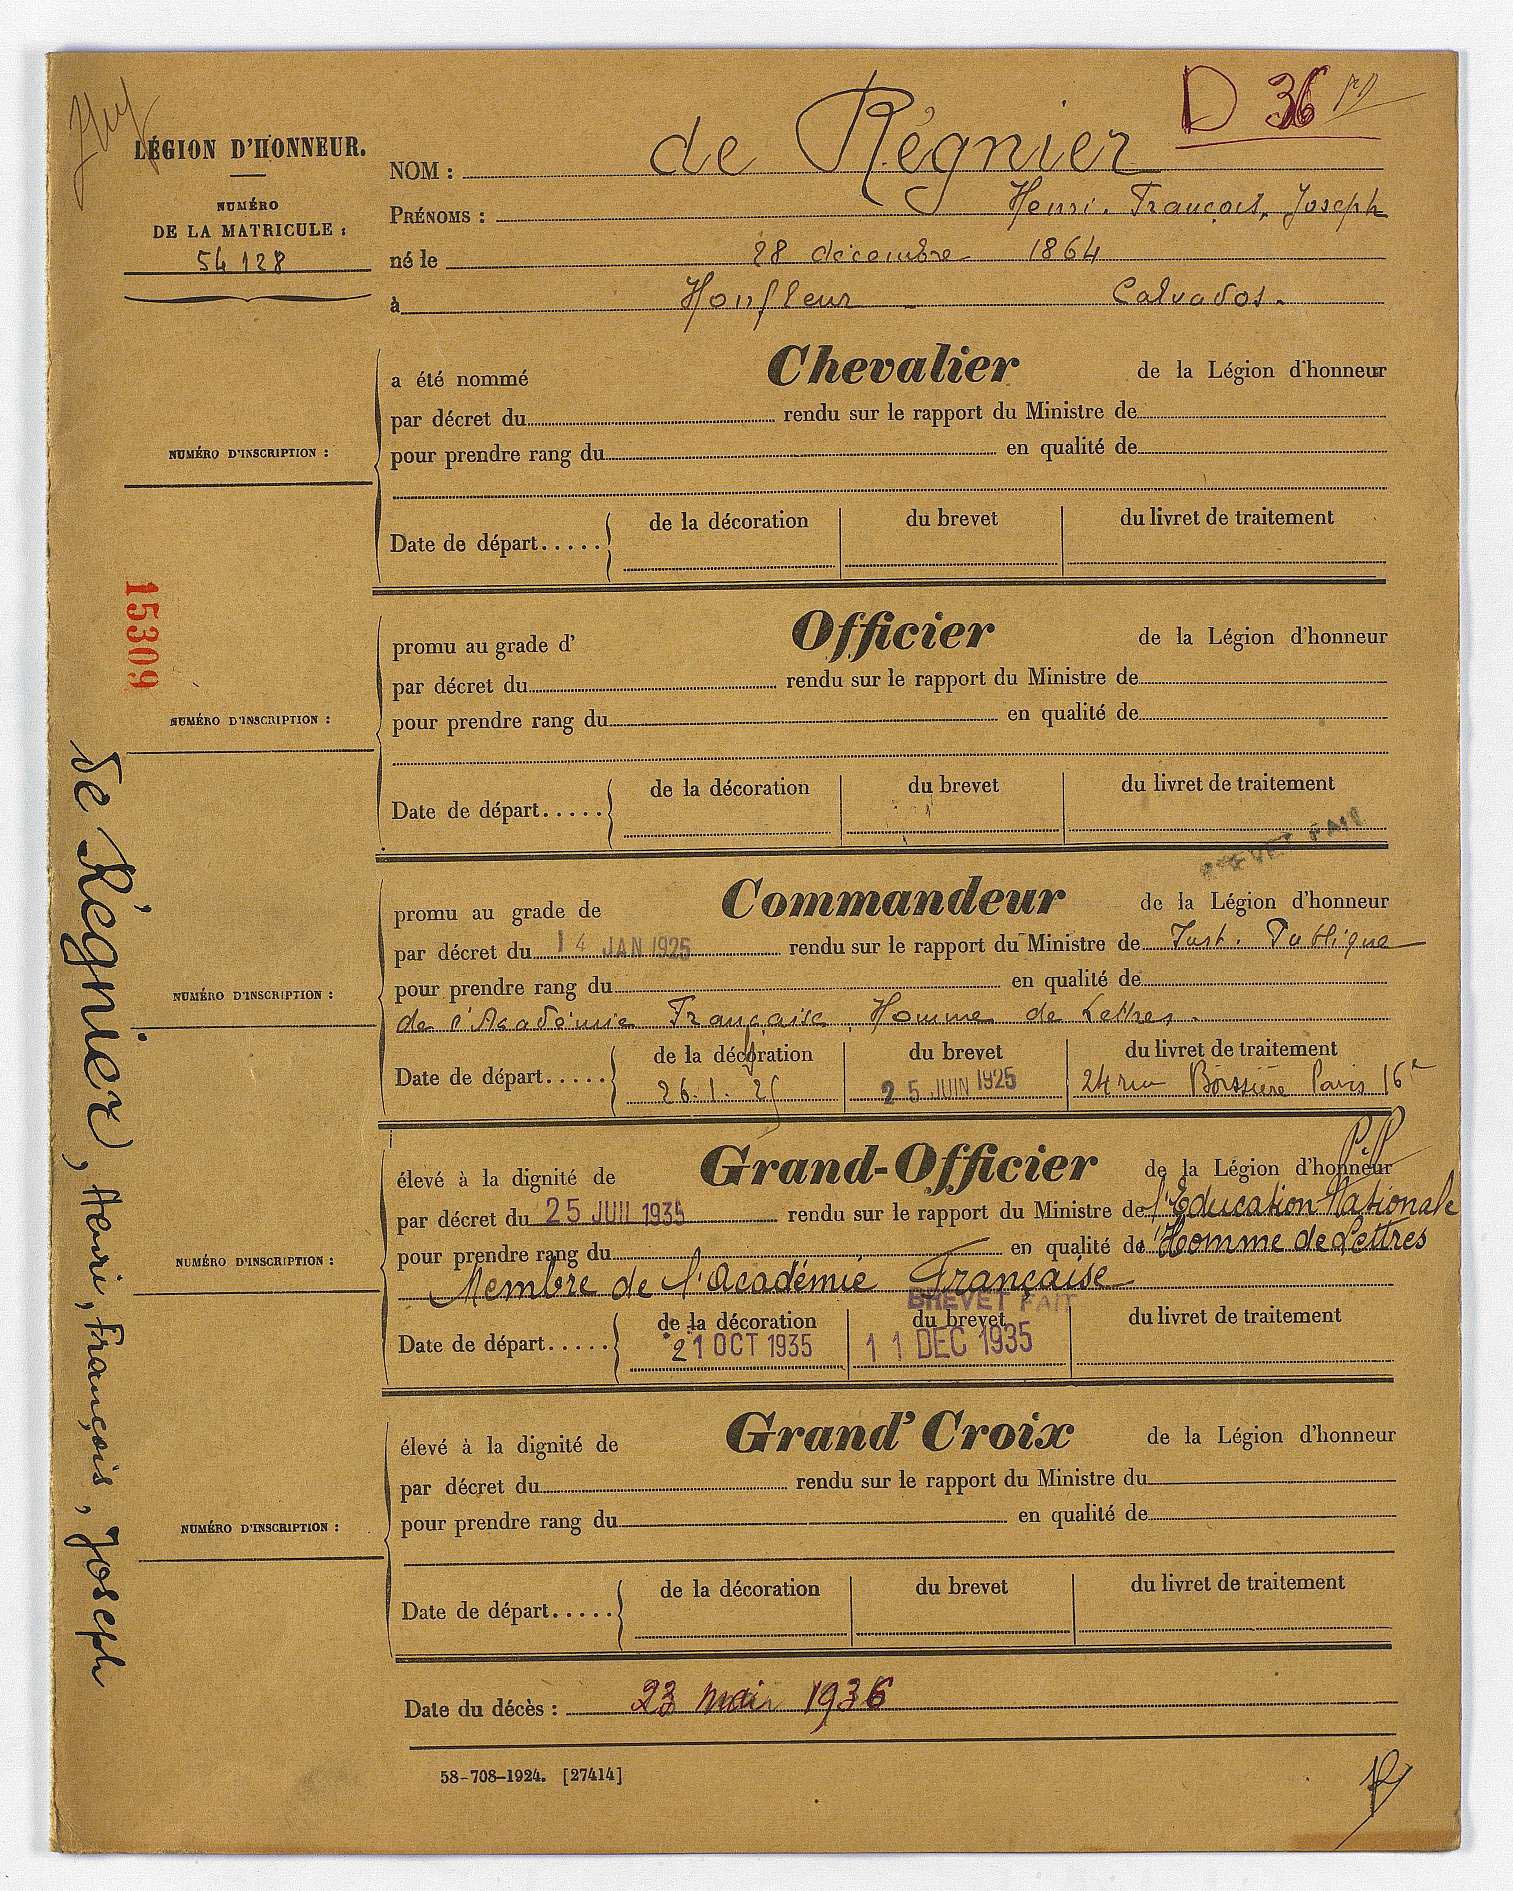 LÉGION D'HONNEUR.
NUMÉRO
DE LA MATRICULE :
54 128
D 36
NOM : de Régnier
PRÉNOMS : Henri. François. Joseph
né le 28 décembre 1864
à Honfleur Calvados.
a été nommé Chevalier de la Légion d'honneur
par décret du rendu sur le rapport du Ministre de
pour prendre rang du en qualité de
NUMÉRO D'INSCRIPTION :
Date de départ..... de la décoration du brevet du livret de traitement
15309
promu au grade d' Officier de la Légion d'honneur
par décret du rendu sur le rapport du Ministre de
pour prendre rang du en qualité de
NUMÉRO D'INSCRIPTION :
Date de départ..... de la décoration du brevet du livret de traitement
BREVET FAIT
promu au grade de Commandeur de la Légion d'honneur
par décret du 14 JAN 1925 rendu sur le rapport du Ministre de Inst. Publique
pour prendre rang du en qualité de
NUMÉRO D'INSCRIPTION :
de l'Académie Française, Homme de Lettres.
Date de départ..... de la décoration du brevet du livret de traitement
26.1.25 25 JUIN 1925 24 rue Boissière Paris 16e
élevé à la dignité de Grand-Officier de la Légion d'honneur
par décret du 25 JUIL 1935 rendu sur le rapport du Ministre de l'Education Nationale
pour prendre rang du en qualité de Homme de Lettres
NUMÉRO D'INSCRIPTION :
Membre de l'Académie Française
BREVET FAIT
Date de départ..... de la décoration du brevet du livret de traitement
21 OCT 1935 11 DEC 1935
élevé à la dignité de Grand' Croix de la Légion d'honneur
par décret du rendu sur le rapport du Ministre du
pour prendre rang du en qualité de
NUMÉRO D'INSCRIPTION :
Date de départ..... de la décoration du brevet du livret de traitement
Date du décès : 23 mai 1936
58-708-1924. [27414]
de Régnier, Henri, François, Joseph